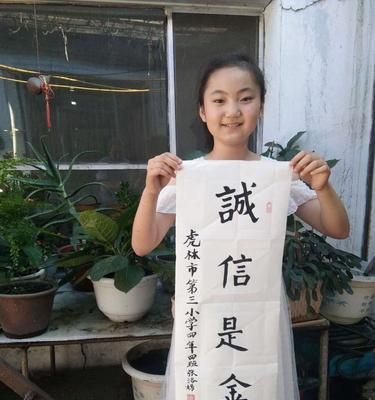 誠信是金
虎林市第三小学四年四班张洛